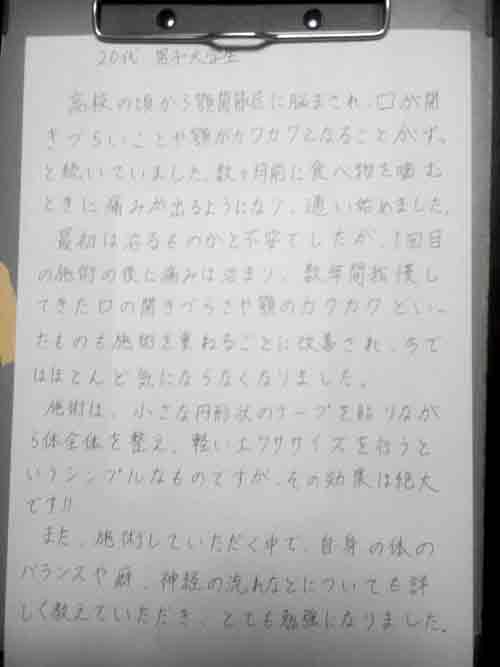 20代 男子大学生
高校の頃から顎関節症に悩まされ、口が開
きづらいことや顎がカクカクとなることがず
と続いていました。数ヶ月前に食べ物を噛む
ときに痛みが出るようになり、通い始めました。
最初は治るものかと不安でしたが、1回目
の施術の後に痛みは治まり、数年間我慢し
てきた口の開きづらさや顎のカクカクといっ
たものも施術を重ねるごとに改善され、今で
はほとんど気にならなくなりました。
施術は、小さな円形状のテープを貼りなが
ら体全体を整え、軽いエクササイズを行うと
いうシンプルなものですが、その効果は絶大
です!!
また、施術していただく中で、自身の体の
バランスや癖、神経の流れなどについても詳
しく教えていただき、とても勉強になりました。